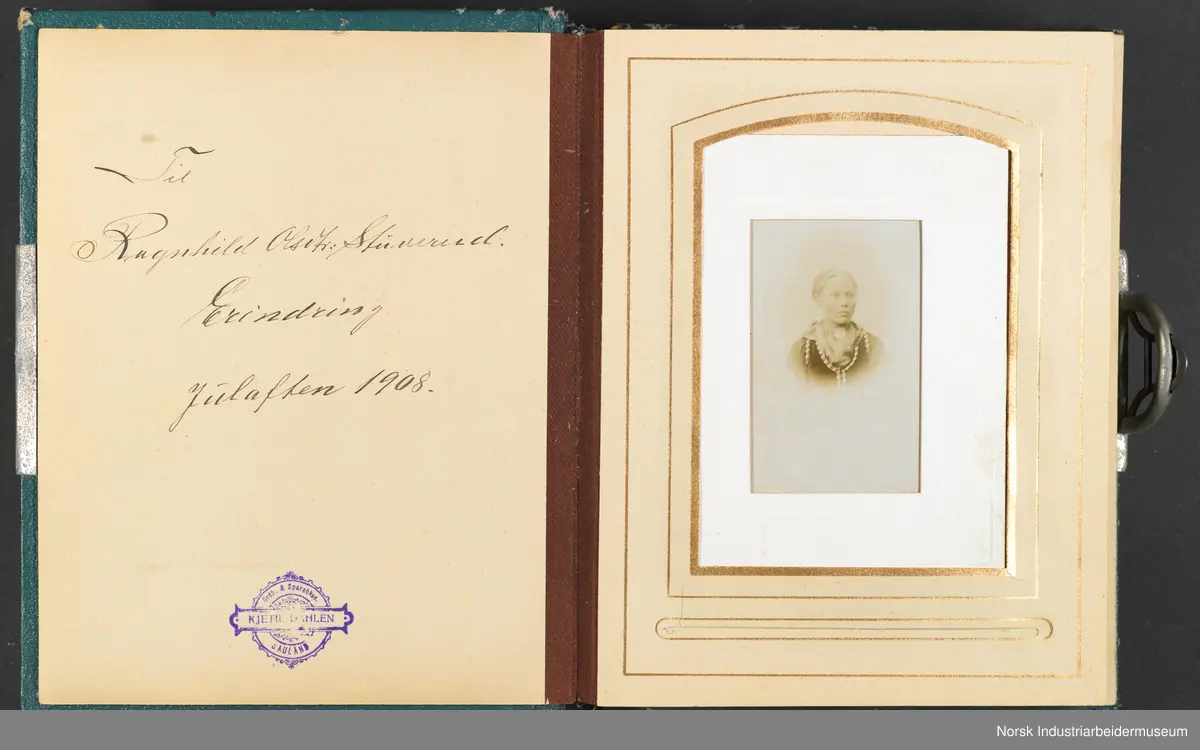 Til
Ragnhild Olsdtr: Stuverud.
Erindring
Julaften 1908.
KJETIL DAHLEN
SAULAND
Norsk Industriarbeidermuseum